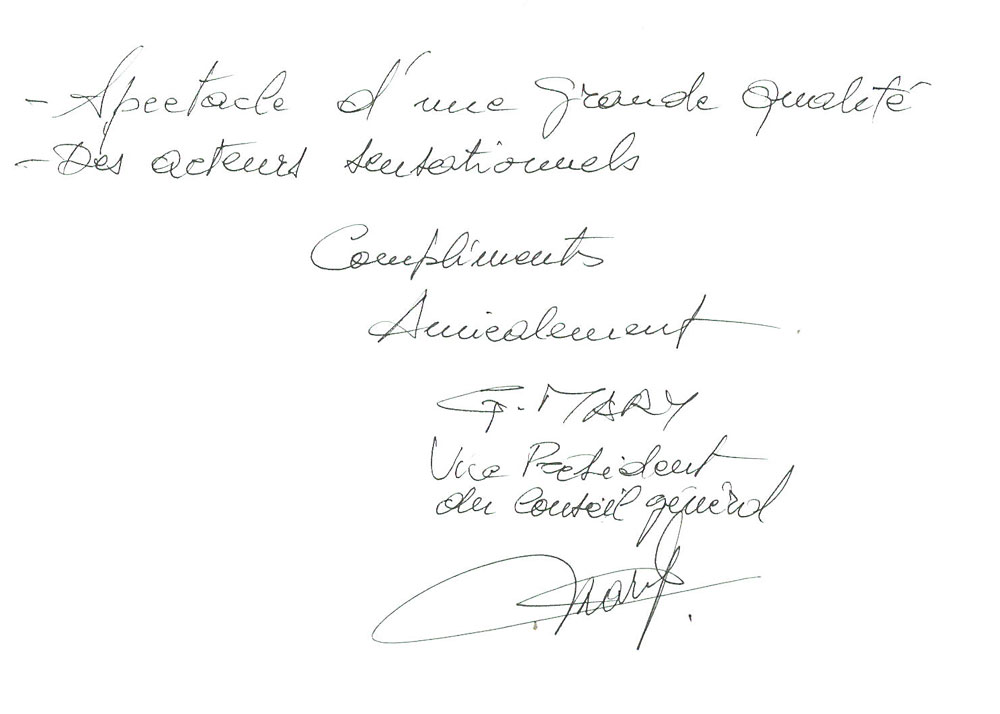 - Spectacle d'une grande qualité
- Des acteurs sensationnels
Compliments
Amicalement
G. MARY
Vice Président
du Conseil général
Mary